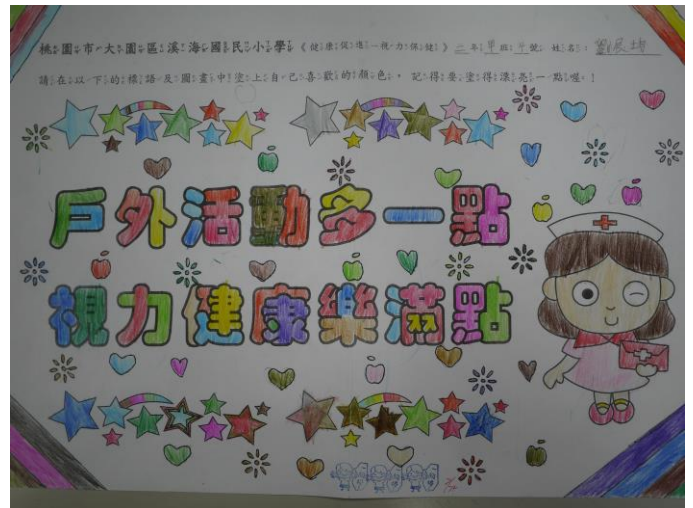 桃園市大園區溪海國民小學《健康促進－視力保健》二年 班 號 姓名：
請在以下的標語及圖畫中塗上自己喜歡的顏色， 記得要塗得漂亮一點喔！
戶外活動多一點
視力健康樂滿點